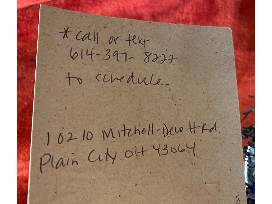 *call or text
614-397-8222
to schedule.
10210 Mitchell-Dewitt Rd
Plain City OH 43064